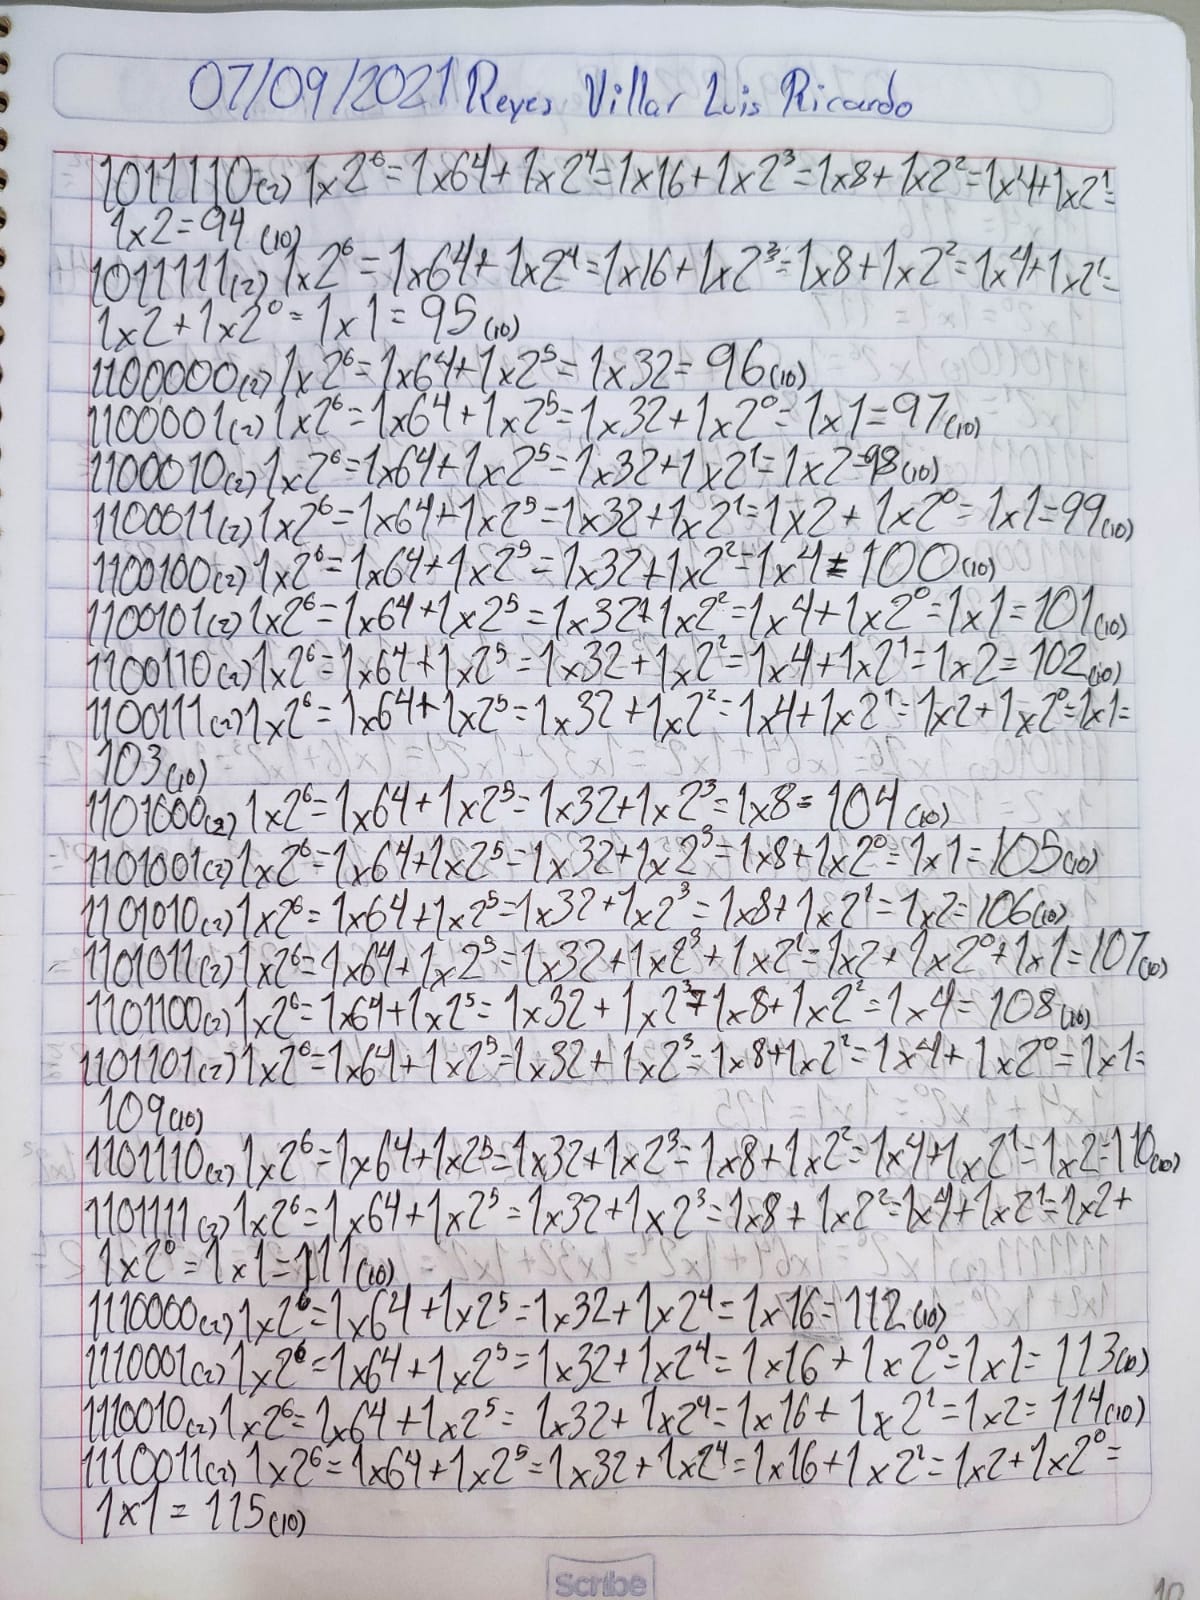 07/09/2021 Reyes Villar Luis Ricardo
1011110(2) 1x2⁶=1x64+1x2⁴=1x16+1x2³=1x8+1x2²=1x4+1x2¹=
1x2=94(10)
1011111(2) 1x2⁶=1x64+1x2⁴=1x16+1x2³=1x8+1x2²=1x4+1x2¹=
1x2+1x2⁰=1x1=95(10)
1100000(2) 1x2⁶=1x64+1x2⁵=1x32=96(10)
1100001(2) 1x2⁶=1x64+1x2⁵=1x32+1x2⁰=1x1=97(10)
1100010(2) 1x2⁶=1x64+1x2⁵=1x32+1x2¹=1x2=98(10)
1100011(2) 1x2⁶=1x64+1x2⁵=1x32+1x2¹=1x2+1x2⁰=1x1=99(10)
1100100(2) 1x2⁶=1x64+1x2⁵=1x32+1x2²=1x4=100(10)
1100101(2) 1x2⁶=1x64+1x2⁵=1x32+1x2²=1x4+1x2⁰=1x1=101(10)
1100110(2) 1x2⁶=1x64+1x2⁵=1x32+1x2²=1x4+1x2¹=1x2=102(10)
1100111(2) 1x2⁶=1x64+1x2⁵=1x32+1x2²=1x4+1x2¹=1x2+1x2⁰=1x1=
103(10)
1101000(2) 1x2⁶=1x64+1x2⁵=1x32+1x2³=1x8=104(10)
1101001(2) 1x2⁶=1x64+1x2⁵=1x32+1x2³=1x8+1x2⁰=1x1=105(10)
1101010(2) 1x2⁶=1x64+1x2⁵=1x32+1x2³=1x8+1x2¹=1x2=106(10)
1101011(2) 1x2⁶=1x64+1x2⁵=1x32+1x2³+1x2¹=1x2+1x2⁰+1x1=107(10)
1101100(2) 1x2⁶=1x64+1x2⁵=1x32+1x2³=1x8+1x2²=1x4=108(10)
1101101(2) 1x2⁶=1x64+1x2⁵=1x32+1x2³=1x8+1x2²=1x4+1x2⁰=1x1=
109(10)
1101110(2) 1x2⁶=1x64+1x2⁵=1x32+1x2³=1x8+1x2²=1x4+1x2¹=1x2=110(10)
1101111(2) 1x2⁶=1x64+1x2⁵=1x32+1x2³=1x8+1x2²=1x4+1x2¹=1x2+
1x2⁰=1x1=111(10)
1110000(2) 1x2⁶=1x64+1x2⁵=1x32+1x2⁴=1x16=112(10)
1110001(2) 1x2⁶=1x64+1x2⁵=1x32+1x2⁴=1x16+1x2⁰=1x1=113(10)
1110010(2) 1x2⁶=1x64+1x2⁵=1x32+1x2⁴=1x16+1x2¹=1x2=114(10)
1110011(2) 1x2⁶=1x64+1x2⁵=1x32+1x2⁴=1x16+1x2¹=1x2+1x2⁰=
1x1=115(10)
Scribe